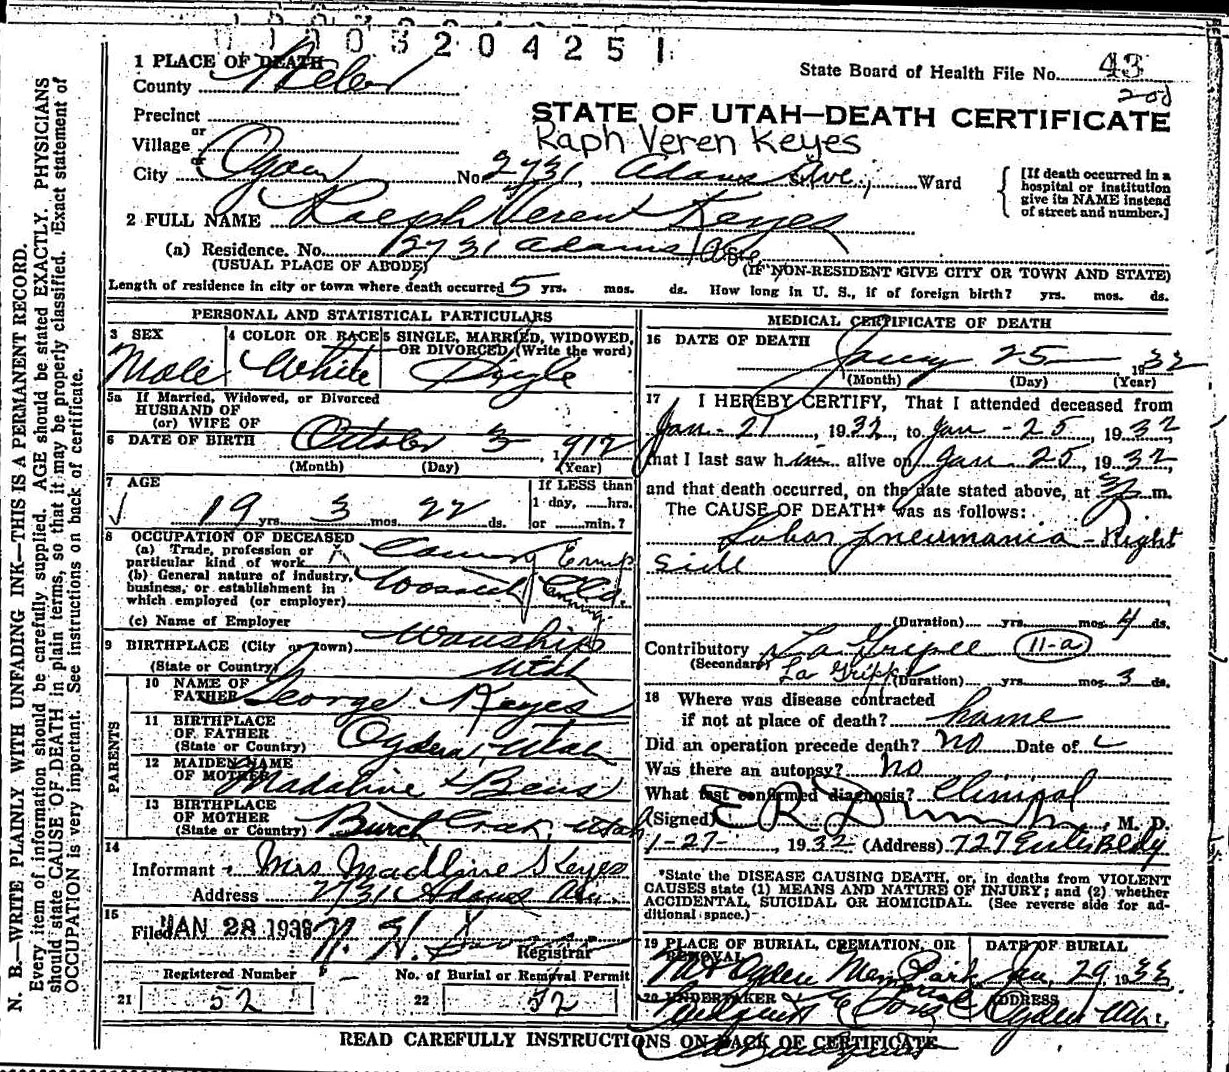 1 0 0 3 2 0 4 2 5 1
1 PLACE OF DEATH
County Weber
State Board of Health File No. 43
200
STATE OF UTAH—DEATH CERTIFICATE
Raph Veren Keyes
Precinct
or
Village
or
City Ogden No. 2731 Adams Ave, St. Ward
[If death occurred in a hospital or institution give its NAME instead of street and number.]
2 FULL NAME Raeph Veren Keyes
(a) Residence. No. 2731 Adams Ave
(USUAL PLACE OF ABODE) (IF NON-RESIDENT GIVE CITY OR TOWN AND STATE)
Length of residence in city or town where death occurred 5 yrs. mos. ds. How long in U. S., if of foreign birth? yrs. mos. ds.
PERSONAL AND STATISTICAL PARTICULARS
3 SEX Male
4 COLOR OR RACE White
5 SINGLE, MARRIED, WIDOWED, OR DIVORCED (Write the word) Single
5a If Married, Widowed, or Divorced
HUSBAND OF
(or) WIFE OF
6 DATE OF BIRTH October 3 1912
(Month) (Day) (Year)
7 AGE
19 yrs. 3 mos. 22 ds.
If LESS than
1 day, hrs.
or min.?
8 OCCUPATION OF DECEASED
(a) Trade, profession or
particular kind of work X Emp
(b) General nature of industry,
business, or establishment in
which employed (or employer) Canning
(c) Name of Employer
9 BIRTHPLACE (City or town) Wanship
(State or Country) Utah
PARENTS
10 NAME OF
FATHER George Keyes
11 BIRTHPLACE
OF FATHER
(State or Country) Ogden, Utah
12 MAIDEN NAME
OF MOTHER Madaline Beus
13 BIRTHPLACE
OF MOTHER
(State or Country) Burch Creek, Utah
14
Informant Mrs Madline Keyes
Address 2731 Adams Ave.
15
Filed JAN 28 193
Registrar
Registered Number No. of Burial or Removal Permit
21 52 22 52
MEDICAL CERTIFICATE OF DEATH
16 DATE OF DEATH
January 25 1932
(Month) (Day) (Year)
17 I HEREBY CERTIFY, That I attended deceased from
Jan - 21, 1932, to Jan - 25, 1932,
that I last saw him alive on Jan 25, 1932,
and that death occurred, on the date stated above, at m.
The CAUSE OF DEATH* was as follows:
Lobar pneumania - Right
Side
(Duration) yrs. mos. 4 ds.
Contributory La Grippe 11-a
(Secondary) La Grippe (Duration) yrs. mos. 3 ds.
18 Where was disease contracted
if not at place of death? home
Did an operation precede death? no Date of
Was there an autopsy? no
What test confirmed diagnosis? Clinical
(Signed) E R , M. D.
1-27-, 1932 (Address) 727 Bldg
*State the DISEASE CAUSING DEATH, or, in deaths from VIOLENT
CAUSES state (1) MEANS AND NATURE OF INJURY; and (2) whether
ACCIDENTAL, SUICIDAL OR HOMICIDAL. (See reverse side for additional space.)
19 PLACE OF BURIAL, CREMATION, OR REMOVAL DATE OF BURIAL
Mt Ogden Mem Park Jan, 29, 1932
20 UNDERTAKER ADDRESS
& Sons Ogden Utah.
READ CAREFULLY INSTRUCTIONS ON BACK OF CERTIFICATE
N. B.—WRITE PLAINLY WITH UNFADING INK—THIS IS A PERMANENT RECORD.
Every item of information should be carefully supplied. AGE should be stated EXACTLY. PHYSICIANS
should state CAUSE OF DEATH in plain terms, so that it may be properly classified. Exact statement of
OCCUPATION is very important. See instructions on back of certificate.